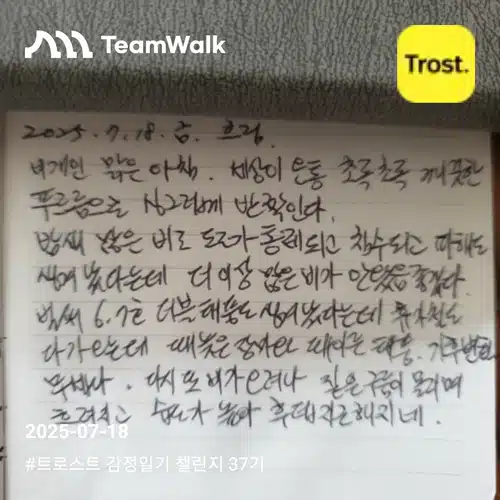 TeamWalk
Trost.
2025.7.18.금. 흐림.
비개인 맑은 아침. 세상이 온통 초록초록 깨끗한
푸르름으로 싱그럽게 반짝인다.
밤새 많은 비로 도로가 통제되고 침수되고 피해도
생겨 났다는데 더 이상 많은 비가 안왔음 좋겠다.
벌써 6.7호 더블태풍도 생겨 났다는데 휴가철도
다가오는데 때늦은 장마와 때이른 태풍. 기후변화
무섭다. 다시 또 비가 오려나 짙은 구름이 몰리며
흐려지고 습도가 높아 후텁지근해지네.
2025-07-18
#트로스트 감정일기 챌린지 37기